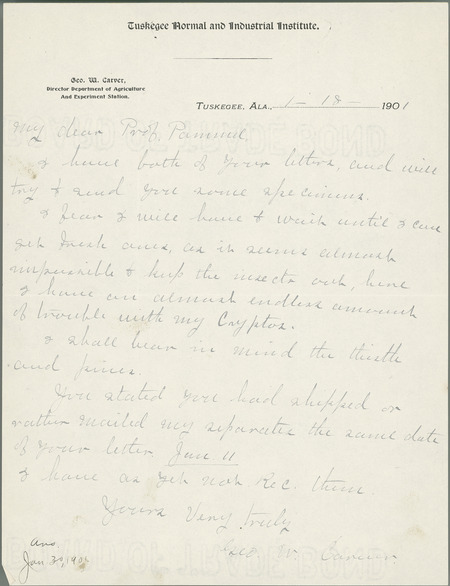 Tuskegee Normal and Industrial Institute.
Geo. W. Carver,
Director Department of Agriculture
And Experiment Station.
Tuskegee, Ala., 1 - 18 - 1901
My dear Prof. Pammel.
I have both of your letters, and will
try to send you some specimens.
I fear I will have to wait until I can
get fresh ones, as it seems almost
impossible to keep the insects out, here
I have an almost endless amount
of trouble with my Cryptos.
I shall bear in mind the thistle
and pines.
You stated you had shipped or
rather mailed my separates the same date
of your letter. Jan. 11
I have as yet not Rec. them.
Yours Very truly
Geo. W. Carver
Ans.
Jan 1901